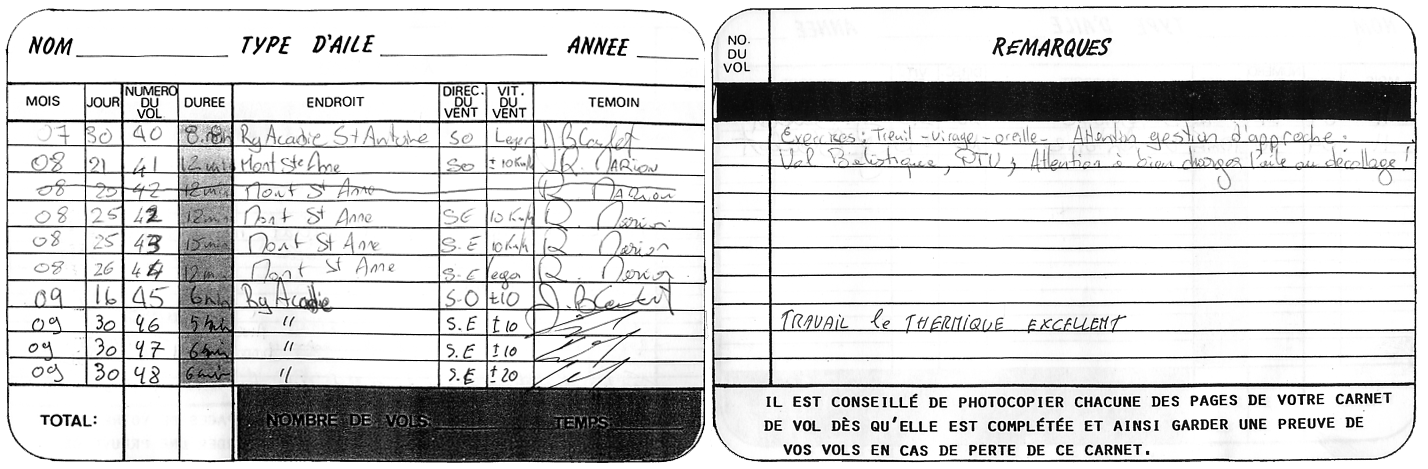 NOM TYPE D'AILE ANNEE
MOIS JOUR NUMERO DU VOL DUREE ENDROIT DIREC. DU VENT VIT. DU VENT TEMOIN
07 30 40 8 min Ry Acadie St Antoine SO Leger
08 21 41 12 min Mont Ste Anne SO ± 10 Km/h R. MARION
08 20 42 12 min Mont St Anne R MARION
08 25 42 12 min Mont St Anne SE 10 Km/h R. Marion
08 25 43 15 min Mont St Anne S.E 10 Km/h R. Marion
08 26 44 12 m Mont St Anne S.E leger R. Marion
09 16 45 6 min Ry Acadie S-O ±10
09 30 46 5 min " S.E ±10
09 30 47 6 min " S.E ±10
09 30 48 6 min " S.E ±20
TOTAL: NOMBRE DE VOLS TEMPS
NO. DU VOL REMARQUES
Exercises: Treuil - virage - oreille - Attention gestion d'approche.
Vol Bielistique, PTU, Attention à bien charger l'aile au décollage!
TRAVAIL le THERMIQUE EXCELLENT
IL EST CONSEILLÉ DE PHOTOCOPIER CHACUNE DES PAGES DE VOTRE CARNET
DE VOL DÈS QU'ELLE EST COMPLÉTÉE ET AINSI GARDER UNE PREUVE DE
VOS VOLS EN CAS DE PERTE DE CE CARNET.